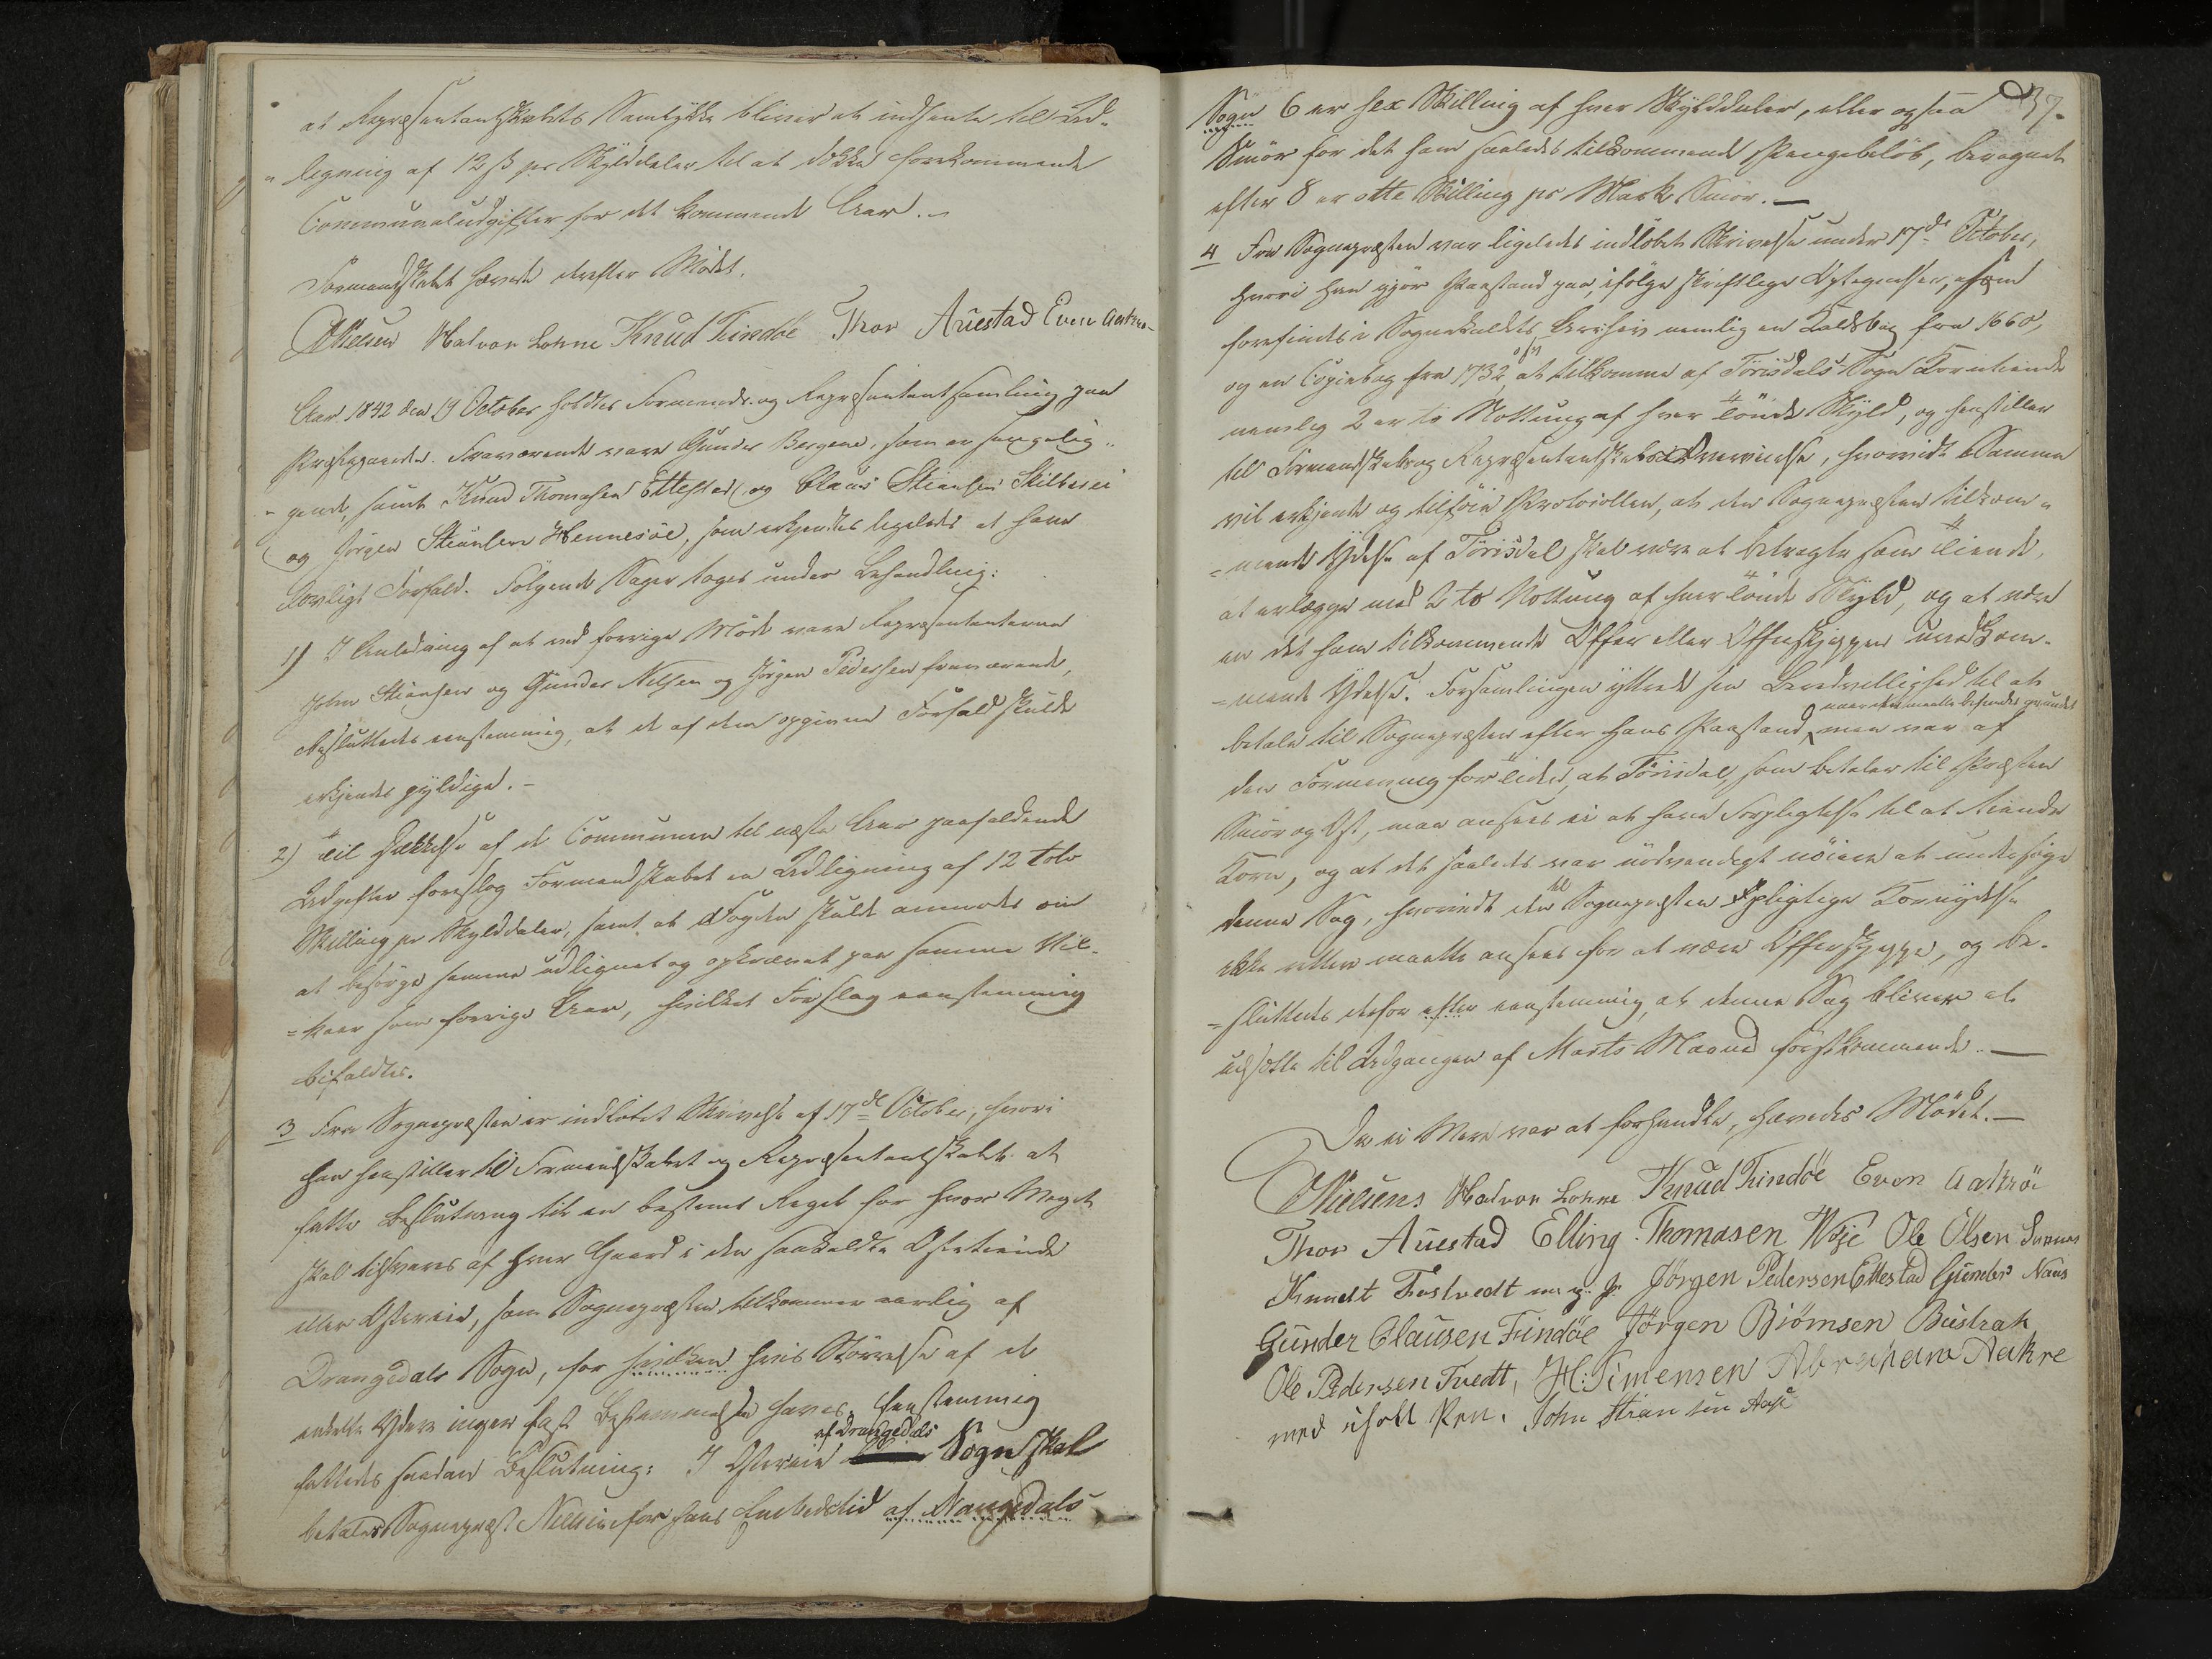 at Repræsentantskabets Samtykke bliver at indhente til Ud-
ligning af 12 ß pr Skylddaler til at dække forekommende
Communaludgifter for det kommende Aar.-
Formandskabet hævede derefter Mødet.
Nielsen Halvor Lohne Knud Tindöe Thor Auestad Even Aakre
Aar 1842 den 19 October holdtes Formands- og Repræsentantsamling paa
Præstegaarden. Fraværende vare Gunder Bergene, som er sengelig-
gende, samt Knud Thomesen Ettestad og Claus Stiansen Stilbusei
og Jörgen Stiansen Hennesöe, som erkjendtes ligeledes at have
lovligt Forfald. Fölgende Sager toges under Behandling:
1) I Anledning af at ved forrige Möde vare Repræsentanterne
John Stiansen og Gunder Nilsen og Jörgen Pedersen fraværende,
besluttedes eenstemmig, at de af dem opgivne Forfald skulde
erkjendes gyldige.-
2) Til Dækkelse af de Communen til næste Aar paafaldende
Udgifter foreslog Formandskabet en Udligning af 12 tolv
Skilling pr Skylddaler, samt at Fogden skulde anmodes om
at besörge samme udlignet og opkrævet paa samme Vil-
=kaar som forrige Aar, hvilket Forslag eenstemmig
bifaldtes.
3 Fra Sognepræsten er indlöbet Skrivelse af 17de October, hvori
han henstiller til Formandskabet og Repræsentantskabet at
fatte Beslutning til en bestemt Regel for hvor Meget
skal tilsvares af hver Gaard i den saakaldte Ostetiende
eller Ostereie, som Sognepræsten tilkommer aarlig af
Drangedals Sogn, for hvilken hvis Störrelse af de
enkelte Ydere ingen fast Bestemmelse haves. Eenstemmig
fattedes saadan Beslutning: I Ostereie af Drangedals Sogn skal
betales Sognepræst Nielsen for hans Embedstid af Drangedals
37.
Sogn 6 er sex Skilling af hver Skylddaler, eller ogsaa
Smör for det ham saaledes tilkommende Pengebelöb, beregnet
efter 8 er otte Skilling pr Mark Smör.—
4 Fra Sognepræsten var ligeledes indlöbet Skrivelse under 17de October,
hvori han gjör Paastand paa, ifölge skriftlige Optegnelser, som
forefindes i Sognekaldets Archiv nemlig en Kaldsbog fra 1660,
og en Copiebog fra 1732, at tilkomme af Törisdals Sogn Korntiende
nemlig 2 er to Nottung af hver Tönde Skyld, og henstiller
til Formandskabs og Repræsentantskabs Overveielse, hvorvidt Samme
vil erkjende og tilföie Protocollen, at den Sognepræsten tilkom-
=mende Ydelse af Törisdal skal være at betragte som Tiende,
at erlægge med 2 to Nottung af hver Tönde Skyld, og at være
en det ham tilkommende Offer eller Offerskjeppen uvedkom-
=mende Ydelse. Forsamlingen yttrede sin Beredvillighed til at
betale til Sognepræsten efter hans Paastand, naar den maatte befindes grundet men var af
den Formening forleden, at Törisdal, som betaler til Præsten
Smör og Ost, maa ansees ei at have Forpligtelse til at tiende
Korn, og at det saaledes var nödvendigt nöiere at undersöge
denne Sag, hvorvidt den til Sognepræsten pligtige Kornydelse
ikke rettere maatte ansees for at være Offerskjeppe, og be-
=sluttedes derfor efter eenstemmig, at denne Sag bliver at
udsætte til Udgangen af Marts Maaned förstkommende.—
Da ei Mere var at forhandle, hævedes Mödet.—
Nielsens Halvor Lohne Knud Tindöe Even Aakre
Thor Auestad Elling Thomasen Woje Ole Olsen
Knudt Tostvedt m. p. P. Jörgen Pedersen Ettestad Gunder Næss
Gunder Clausen Tindöe Jörgen Biörnsen Bustrak
Ole Pedersen Tvedt, H: Simensen Abraham Aakre
med iholdt Pen. John Stian sen